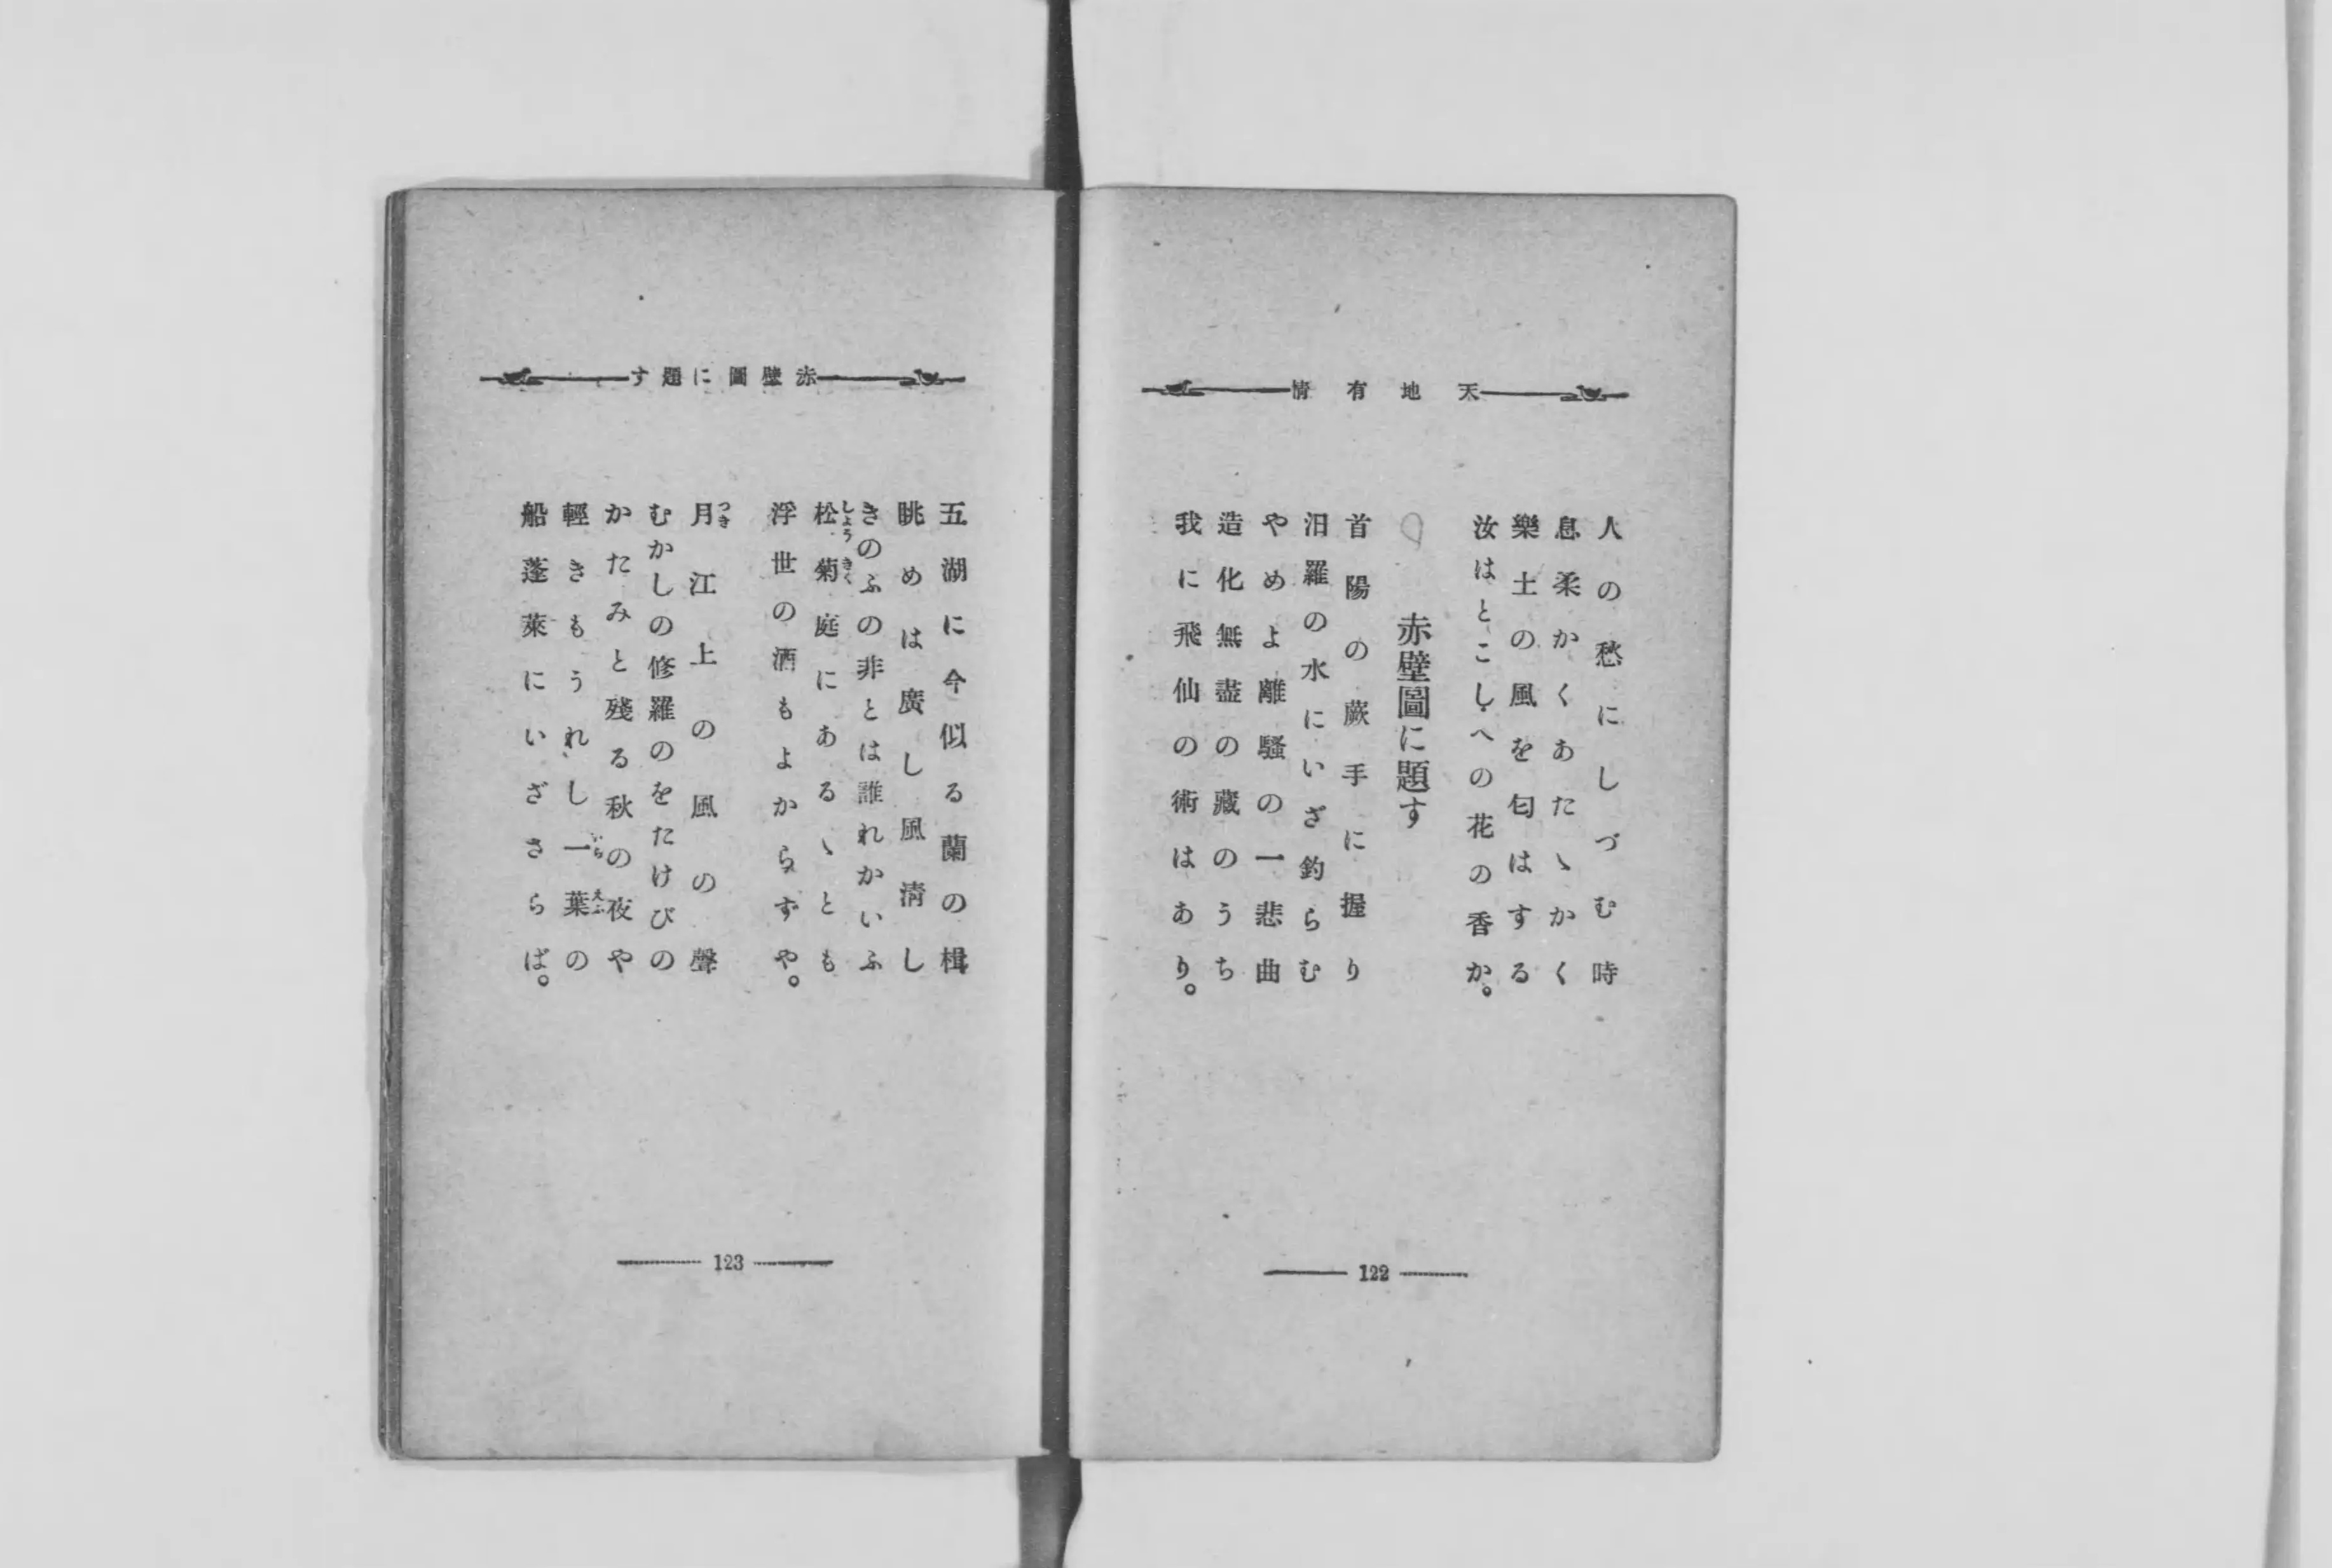 天地有情
人の愁にしづむ時
息柔かくあたゝかく
樂土の風を匂はする
汝はとこしへの花の香か。
赤壁圖に題す
首陽の蕨手に握り
汨羅の水にいざ釣らむ
やめよ離騷の一悲曲
造化無盡の藏のうち
我に飛仙の術はあり。
122
赤壁圖に題す
五湖に今似る蘭の楫
眺めは廣し風淸し
きのふの非とは誰れかいふ
松菊庭にあるゝとも
浮世の酒もよからずや。
月江上の風の聲
むかしの修羅のをたけびの
かたみと殘る秋の夜や
輕きもうれし一葉の
船蓬萊にいざさらば。
123